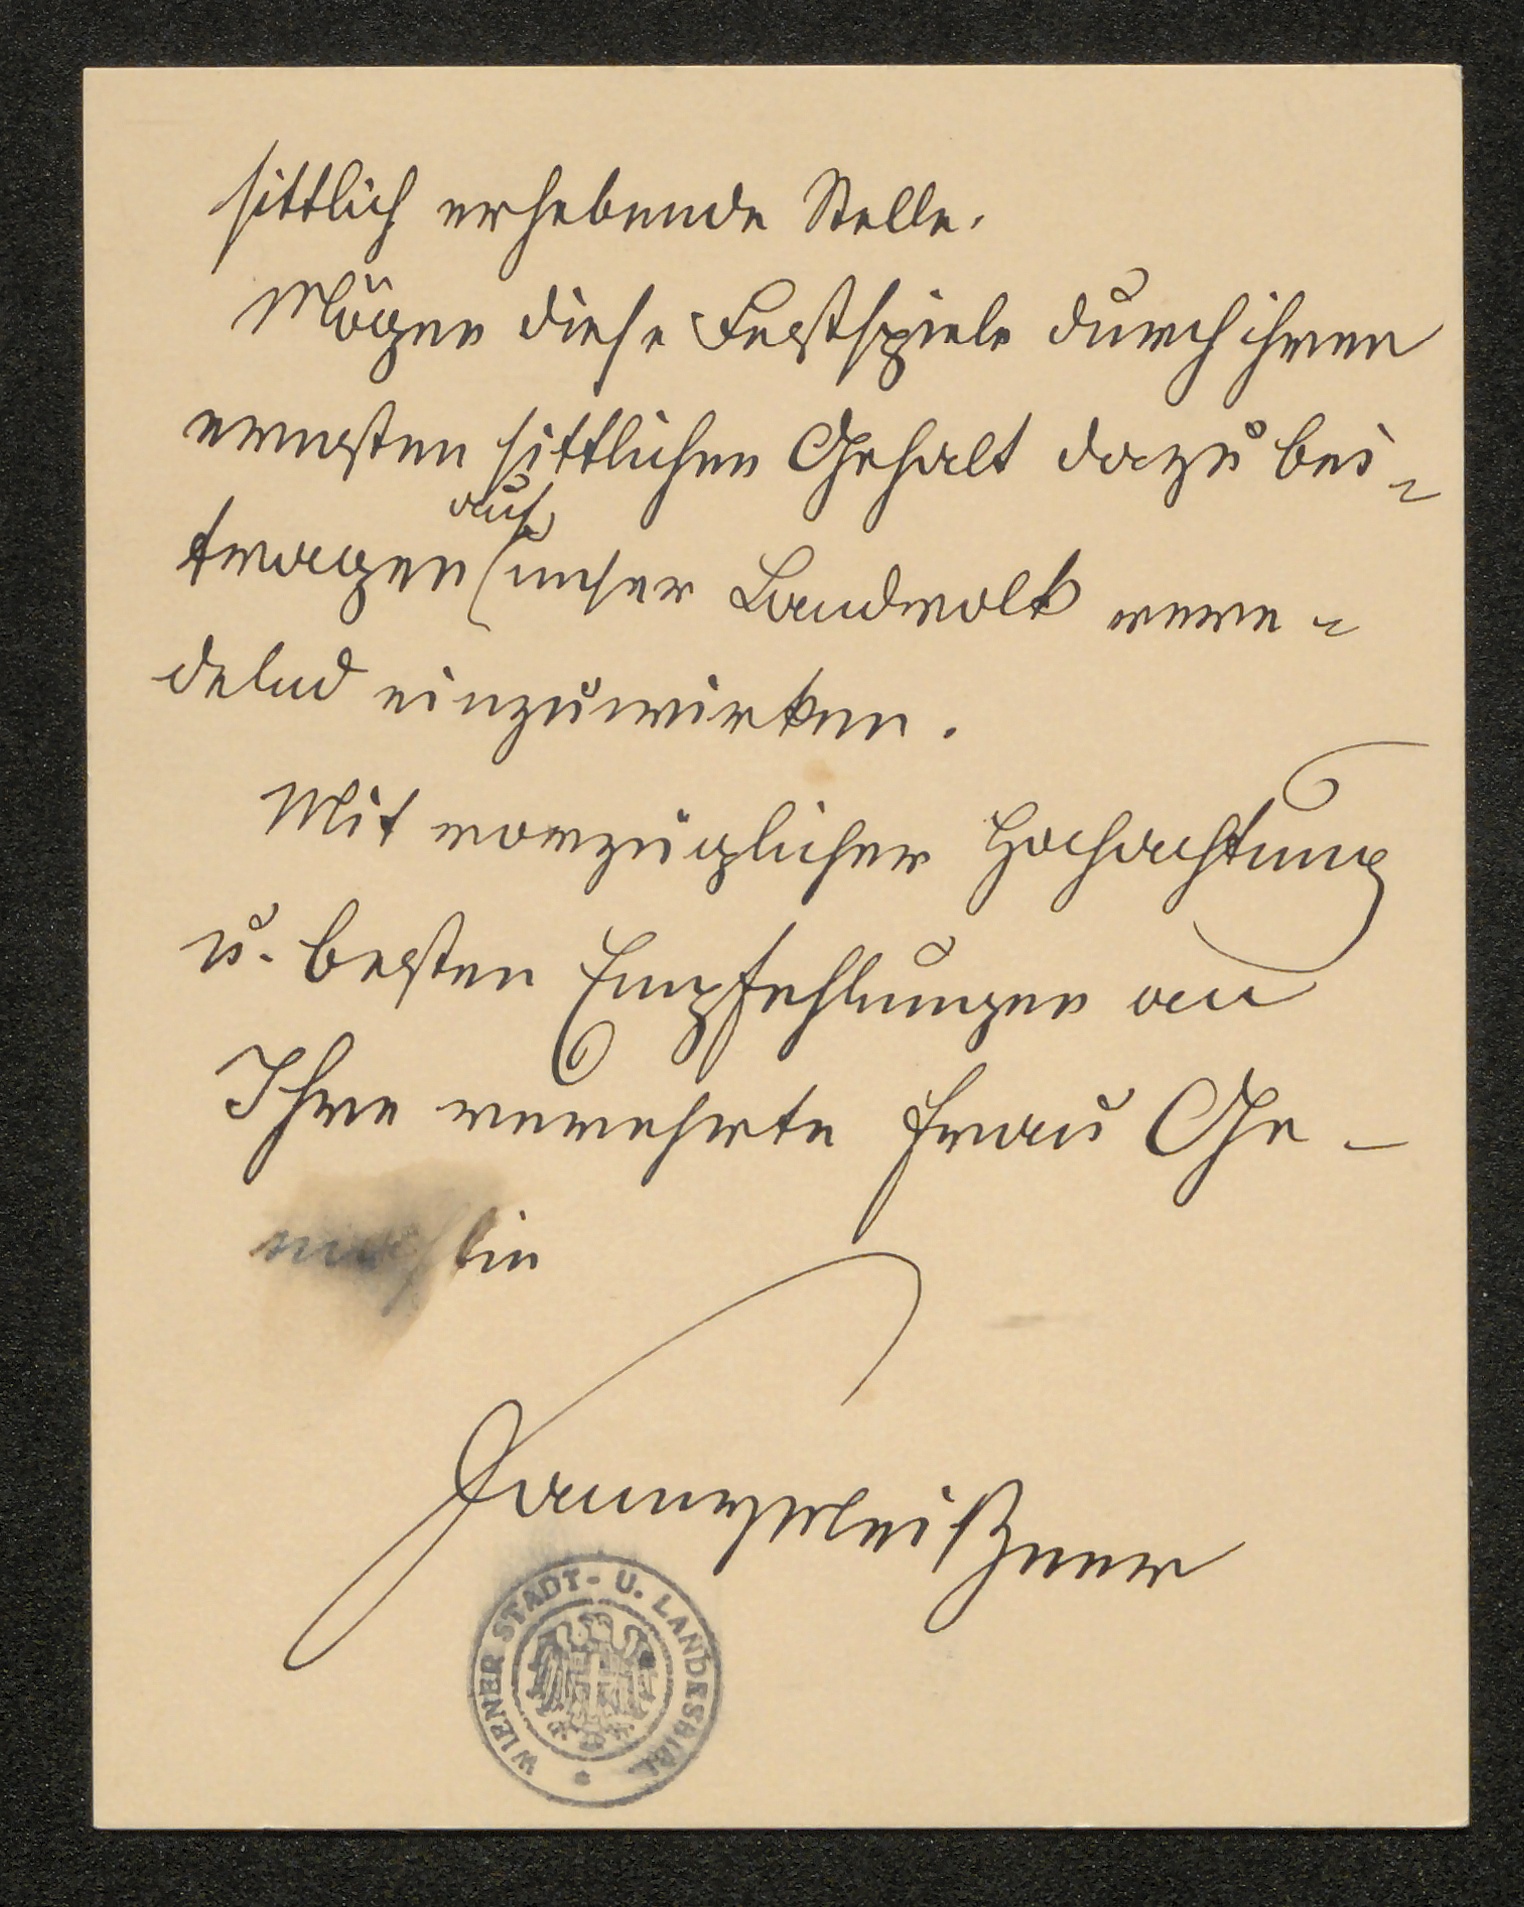 sittlich erhebende Stelle.
Mögen diese Festspiele durch ihren
ernsten sittlichen Gehalt dazu bei-
auf
tragen unser Landvolk vere-
delnd einzuwirken.
Mit vorzüglicher Hochachtung
u. besten Empfehlungen an
Ihre verehrte Frau Ge-
mahlin
WIENER STADT- U. LANDESBIBL.